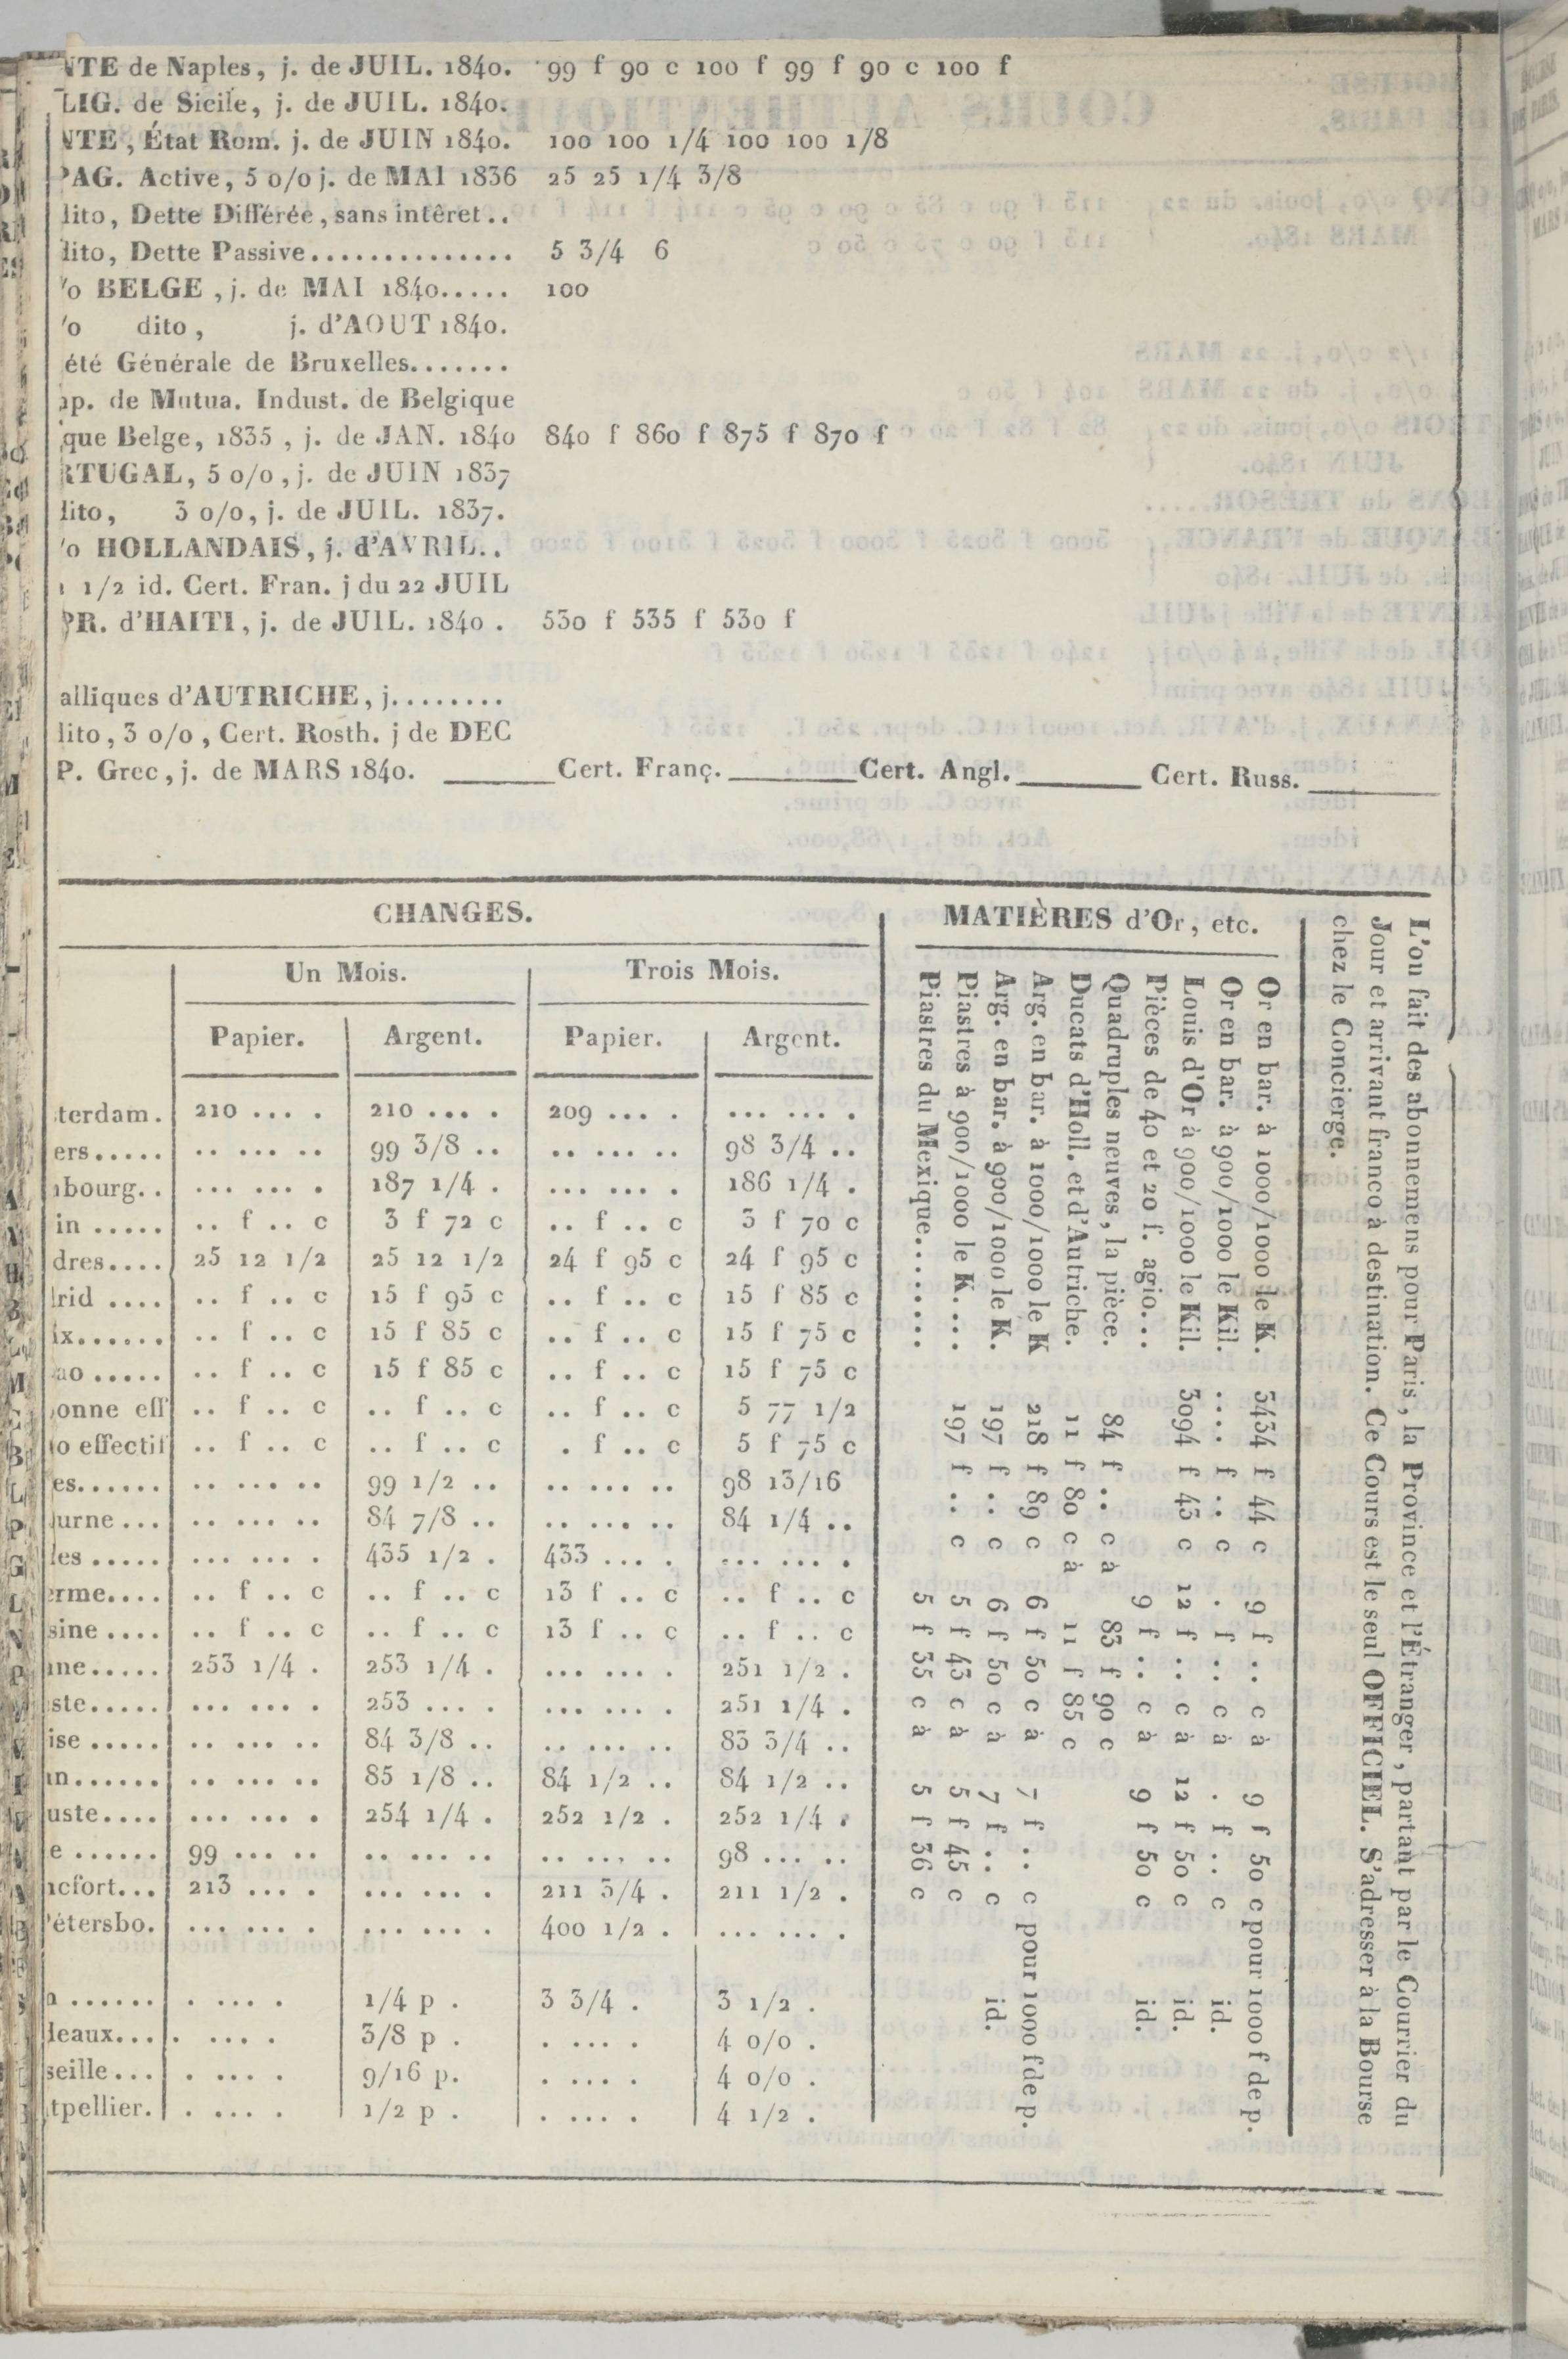 NTE de Naples, j. de JUIL. 1840. 99 f 90 c 100 f 99 f 90 c 100 f
LIG. de Sicile, j. de JUIL. 1840.
NTE, État Rom. j. de JUIN 1840. 100 100 1/4 100 100 1/8
PAG. Active, 5 0/0 j. de MAI 1836 25 25 1/4 3/8
dito, Dette Différée, sans intêret..
dito, Dette Passive.............. 5 3/4 6
/0 BELGE, j. de MAI 1840..... 100
/0 dito, j. d'AOUT 1840.
été Générale de Bruxelles.......
np. de Mutua. Indust. de Belgique
que Belge, 1835, j. de JAN. 1840 840 f 860 f 875 f 870 f
RTUGAL, 5 0/0, j. de JUIN 1837
dito, 3 0/0, j. de JUIL. 1837.
/0 HOLLANDAIS, j. d'AVRIL..
1/2 id. Cert. Fran. j du 22 JUIL
PR. d'HAITI, j. de JUIL. 1840. 530 f 535 f 530 f
alliques d'AUTRICHE, j........
dito, 3 0/0, Cert. Rosth. j de DEC
P. Grec, j. de MARS 1840. ______ Cert. Franç. ______ Cert. Angl. ______ Cert. Russ. ______
CHANGES.
Un Mois. Trois Mois.
Papier. Argent. Papier. Argent.
terdam. 210 .... . 210 ... . 209 ... . ... ... .
ers..... .. ... .. 99 3/8 .. .. ... .. 98 3/4 ..
bourg.. ... ... . 187 1/4 . ... ... . 186 1/4 .
in ..... .. f .. c 3 f 72 c .. f .. c 3 f 70 c
dres.... 25 12 1/2 25 12 1/2 24 f 95 c 24 f 95 c
drid .... .. f .. c 15 f 95 c .. f .. c 15 f 85 c
ix...... .. f .. c 15 f 85 c .. f .. c 15 f 75 c
ao ..... .. f .. c 15 f 85 c .. f .. c 15 f 75 c
onne eff .. f .. c .. f .. c .. f .. c 5 77 1/2
o effectif .. f .. c .. f .. c . f .. c 5 f 75 c
es...... .. ... .. 99 1/2 .. .. ... .. 98 13/16
urne ... .. ... .. 84 7/8 .. .. ... .. 84 1/4 ..
les ..... ... ... . 435 1/2 . 433 ... . ... ... .
erme.... .. f .. c .. f .. c 13 f .. c .. f .. c
sine .... .. f .. c .. f .. c 13 f .. c .. f .. c
nne..... 253 1/4 . 253 1/4 . ... ... . 251 1/2 .
ste..... ... ... . 253 ... . ... ... . 251 1/4 .
ise ..... .. ... .. 84 3/8 .. .. ... .. 83 3/4 ..
an...... .. ... .. 85 1/8 .. 84 1/2 .. 84 1/2 ..
uste.... ... ... . 254 1/4 . 252 1/2 . 252 1/4 .
e ...... 99 ... .. .. ... .. .. ... .. 98 ... ..
ncfort... 213 ... . ... ... . 211 3/4 . 211 1/2 .
Pétersbo. ... ... . ... ... . 400 1/2 . ... ... .
n ...... . ... . 1/4 p . 3 3/4 . 3 1/2 .
deaux... . ... . 3/8 p . . ... . 4 0/0 .
seille... . ... . 9/16 p. . ... . 4 0/0 .
tpellier. . ... . 1/2 p . . ... . 4 1/2 .
MATIÈRES d'Or, etc.
Or en bar. à 1000/1000 le K. 3434 f 44 c 9 f .. c à 9 f 50 c pour 1000 f de p.
Or en bar. à 900/1000 le Kil. .... f .. c . f .. c à . f .. c id.
Louis d'Or à 900/1000 le Kil. 3094 f 43 c 12 f .. c à 12 f 50 c id.
Pièces de 40 et 20 f. agio... 9 f .. c à 9 f 50 c id.
Quadruples neuves, la pièce. 84 f .. c à 83 f 90 c
Ducats d'Holl. et d'Autriche. 11 f 80 c à 11 f 85 c
Arg. en bar. à 1000/1000 le K 218 f 89 c 6 f 50 c à 7 f .. c pour 1000 f de p.
Arg. en bar. à 900/1000 le K. 197 f .. c 6 f 50 c à 7 f .. c id.
Piastres à 900/1000 le K.... 197 f .. c 5 f 43 c à 5 f 45 c
Piastres du Mexique....... 5 f 35 c à 5 f 36 c
L'on fait des abonnemens pour Paris, la Province et l'Étranger, partant par le Courrier du
Jour et arrivant franco à destination. Ce Cours est le seul OFFICIEL. S'adresser à la Bourse
chez le Concierge.